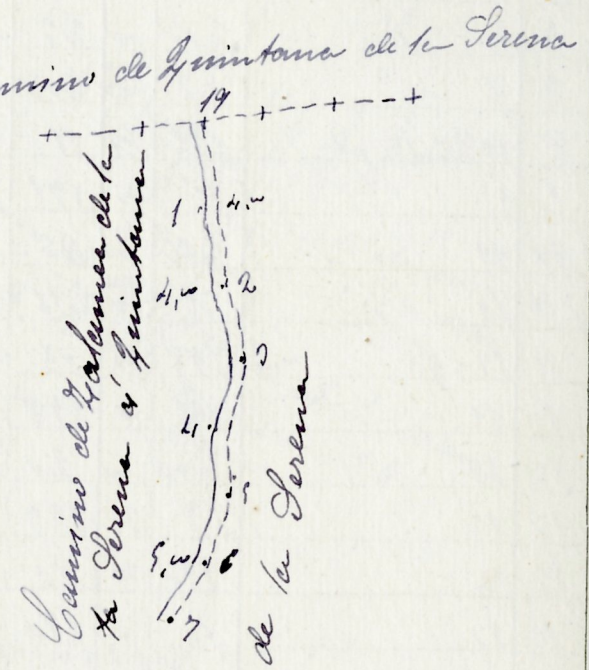 mino de Quintana de la Serena
19
1
4,00
4,00
2
3
4
5
5,00
6
7
Camino de Zalamea de la
la Serena a Quintana
de la Serena